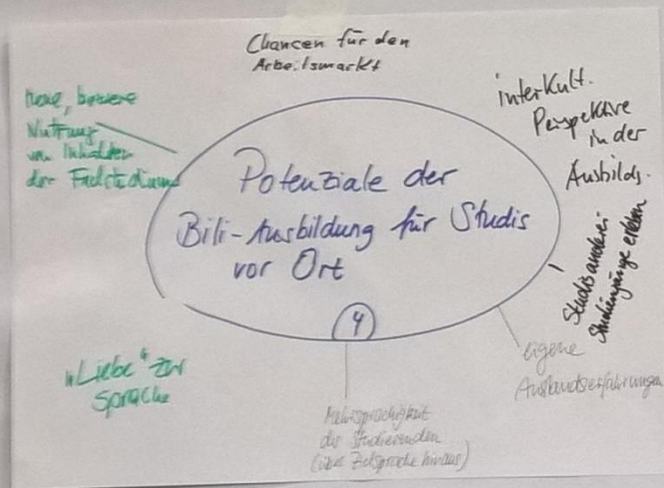 Chancen für den
Arbeitsmarkt
neue, bessere
Nutzung
von Inhalten
der Fachstudium
interkult.
Perspektive
in der
Ausbildg.
Potenziale der
Bili-Ausbildung für Studis
vor Ort
4
Studis anderer
Studiengänge
eigene
Auslandserfahrungen
"Liebe" zur
Sprache
Mehrsprachigkeit
der Studierenden
(über Zielsprache hinaus)